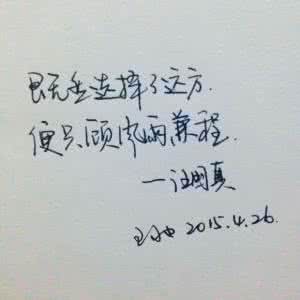 既然选择了远方.
便只顾风雨兼程.
一汪国真
2015.4.26.